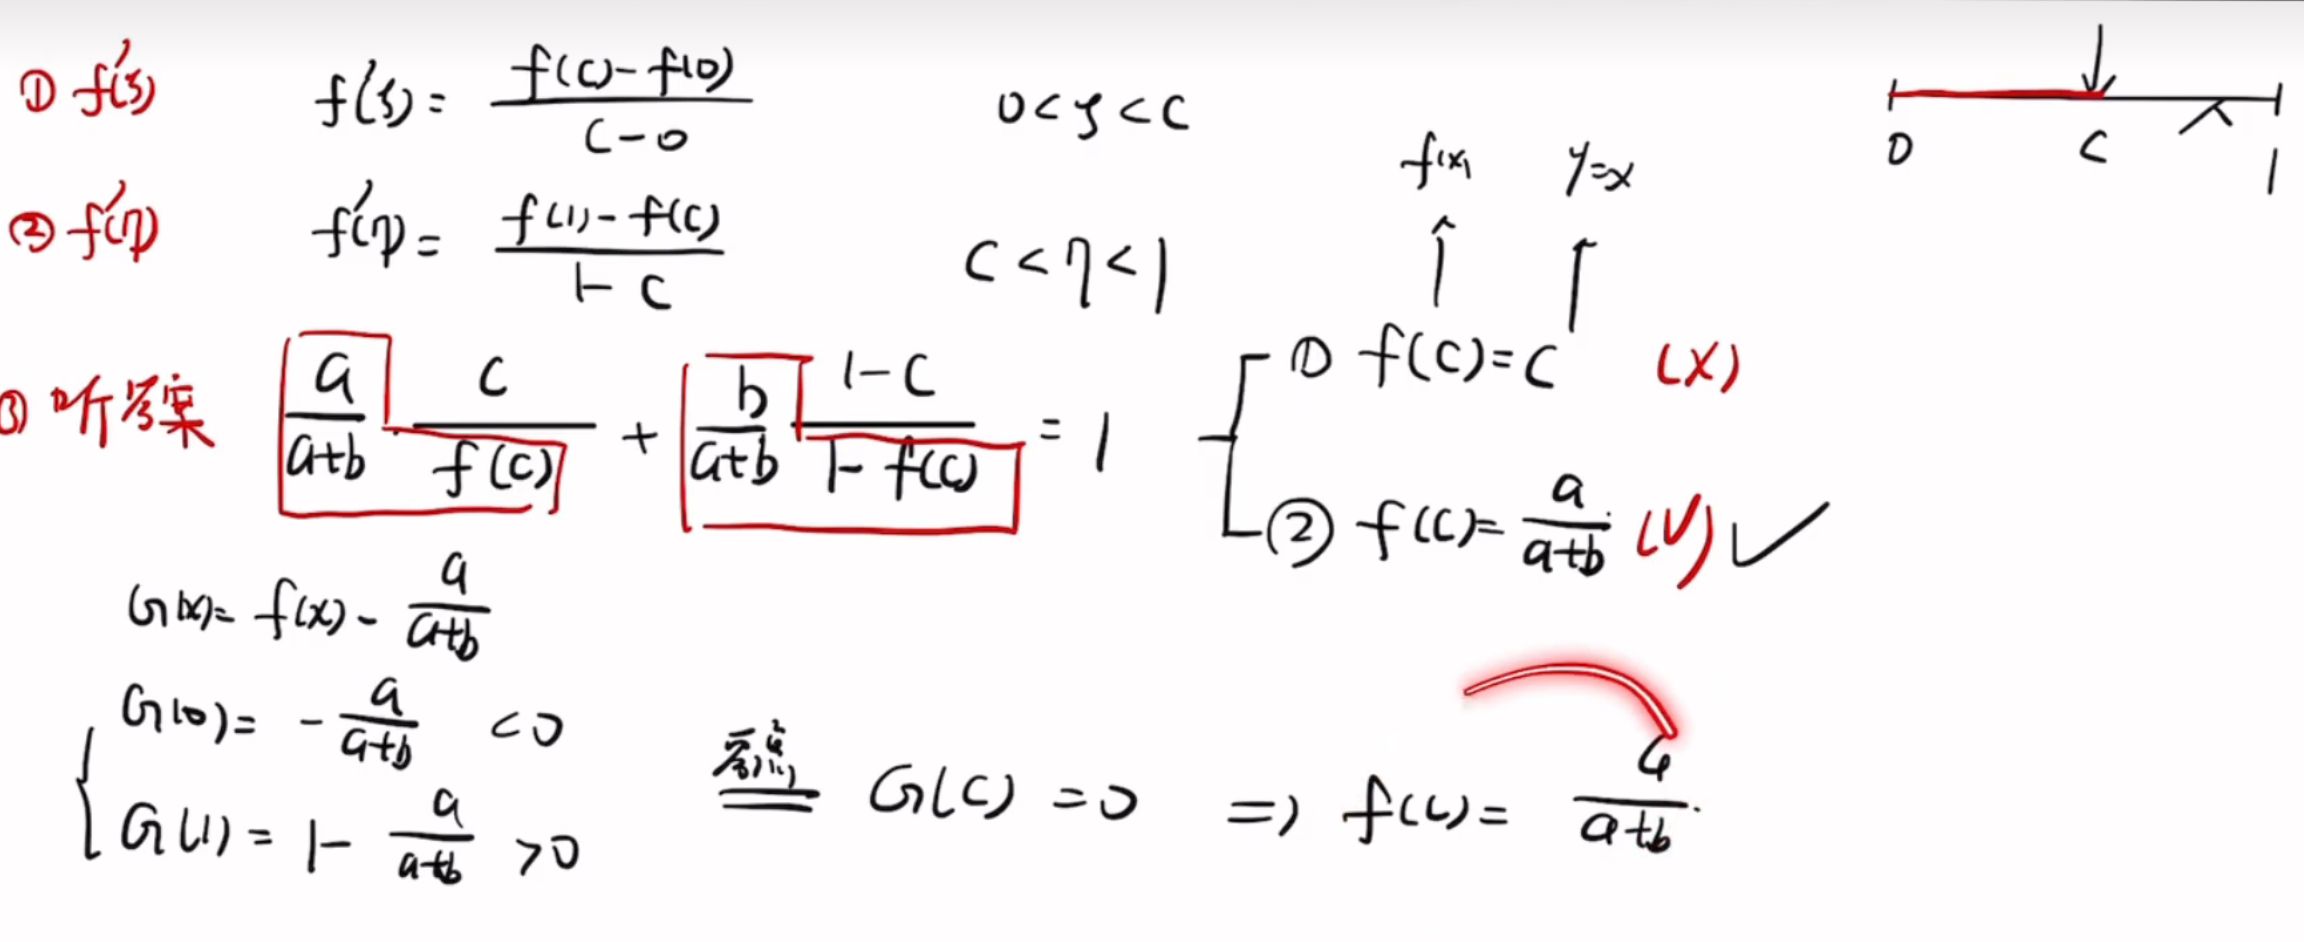 ① f'(ξ) f'(ξ) = (f(c)-f(0))/(c-0) 0<ξ<c
0 c 1
② f'(η) f'(η) = (f(1)-f(c))/(1-c) c<η<1
f(x) y=x
③ 听答案 a/(a+b) · c/f(c) + b/(a+b) · (1-c)/(1-f(c)) = 1
① f(c)=c (×)
② f(c)=a/(a+b) (√) ✓
G(x)= f(x) - a/(a+b)
G(0)= - a/(a+b) <0
G(1)= 1- a/(a+b) >0
零点 G(c)=0 ⇒ f(c)= a/(a+b).